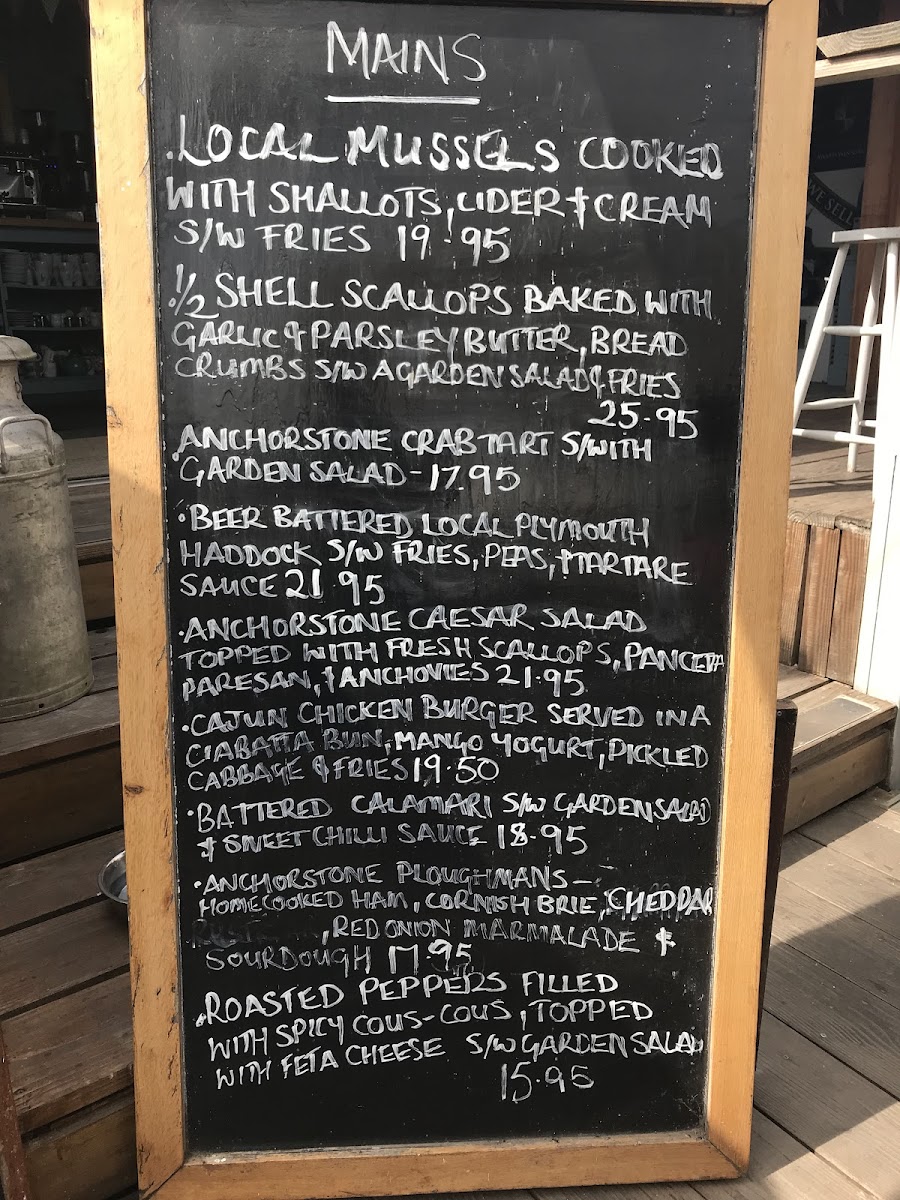 MAINS
. LOCAL MUSSELS COOKED
WITH SHALLOTS, CIDER & CREAM
S/W FRIES 19.95
. 1/2 SHELL SCALLOPS BAKED WITH
GARLIC & PARSLEY BUTTER, BREAD
CRUMBS S/W A GARDEN SALAD & FRIES
25.95
ANCHORSTONE CRAB TART S/WITH
GARDEN SALAD - 17.95
. BEER BATTERED LOCAL PLYMOUTH
HADDOCK S/W FRIES, PEAS, & TARTARE
SAUCE 21 95
. ANCHORSTONE CAESAR SALAD
TOPPED WITH FRESH SCALLOPS, PANCETTA
PARESAN, & ANCHOVIES 21.95
. CAJUN CHICKEN BURGER SERVED IN A
CIABATTA BUN, MANGO YOGURT, PICKLED
CABBAGE & FRIES 19.50
. BATTERED CALAMARI S/W GARDEN SALAD
& SWEET CHILLI SAUCE 18.95
. ANCHORSTONE PLOUGHMANS -
HOMECOOKED HAM, CORNISH BRIE, CHEDDAR
, RED ONION MARMALADE &
SOURDOUGH 17.95
. ROASTED PEPPERS FILLED
WITH SPICY COUS-COUS, TOPPED
WITH FETA CHEESE S/W GARDEN SALAD
15.95
WE SELL